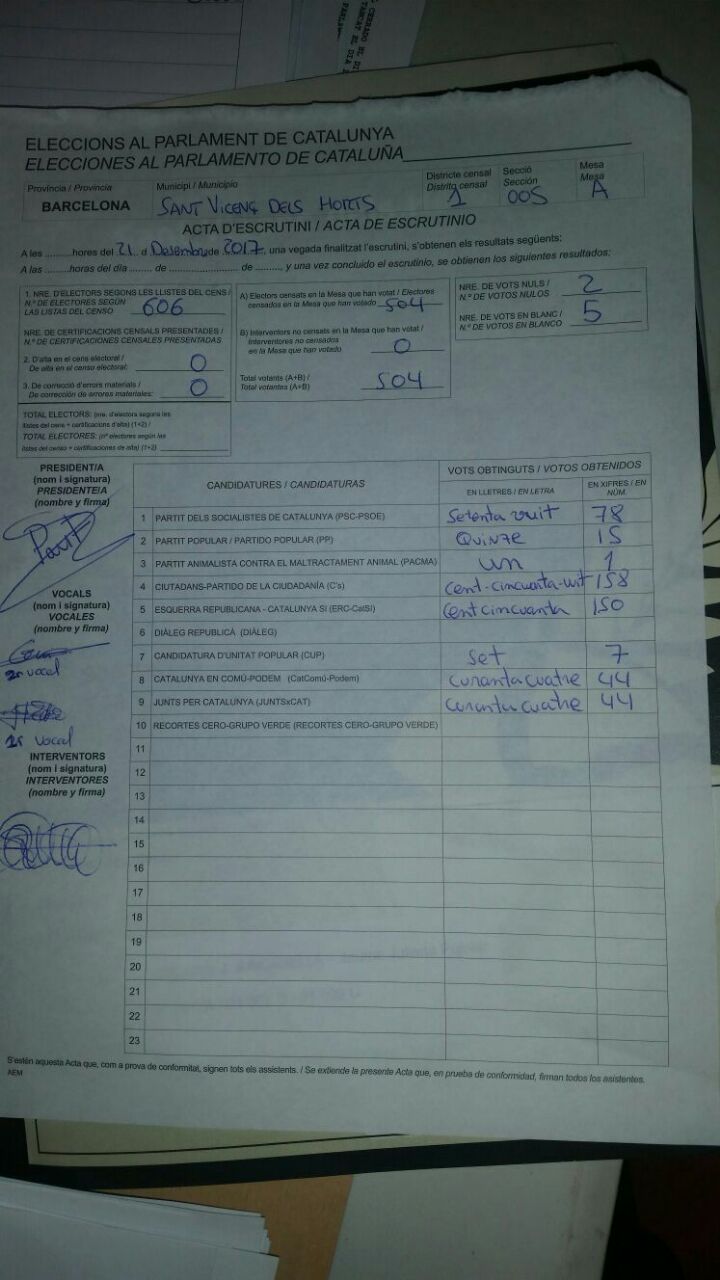 ELECCIONS AL PARLAMENT DE CATALUNYA
ELECCIONES AL PARLAMENTO DE CATALUÑA
Província / Provincia
BARCELONA
Municipi / Municipio
SANT VICENÇ DELS HORTS
Districte censal
Distrito censal
1
Secció
Sección
005
Mesa
Mesa
A
ACTA D'ESCRUTINI / ACTA DE ESCRUTINIO
A les ......... hores del 21 d Desembre de 2017, una vegada finalitzat l'escrutini, s'obtenen els resultats següents:
A las ......... horas del día ........ de ........................ de ........., y una vez concluido el escrutinio, se obtienen los siguientes resultados:
1. NRE. D'ELECTORS SEGONS LES LLISTES DEL CENS /
N.º DE ELECTORES SEGÚN
LAS LISTAS DEL CENSO 606
NRE. DE CERTIFICACIONS CENSALS PRESENTADES /
N.º DE CERTIFICACIONES CENSALES PRESENTADAS
2. D'alta en el cens electoral /
De alta en el censo electoral: 0
3. De correcció d'errors materials /
De corrección de errores materiales: 0
TOTAL ELECTORS: (nre. d'electors segons les
llistes del cens + certificacions d'alta) (1+2) /
TOTAL ELECTORES: (nº electores según las
listas del censo + certificaciones de alta) (1+2)
A) Electors censats en la Mesa que han votat / Electores
censados en la Mesa que han votado 504
B) Interventors no censats en la Mesa que han votat /
Interventores no censados
en la Mesa que han votado 0
Total votants (A+B) /
Total votantes (A+B) 504
NRE. DE VOTS NULS /
N.º DE VOTOS NULOS 2
NRE. DE VOTS EN BLANC /
N.º DE VOTOS EN BLANCO 5
PRESIDENT/A
(nom i signatura)
PRESIDENTE/A
(nombre y firma)
VOCALS
(nom i signatura)
VOCALES
(nombre y firma)
2n vocal
1r vocal
INTERVENTORS
(nom i signatura)
INTERVENTORES
(nombre y firma)
CANDIDATURES / CANDIDATURAS
VOTS OBTINGUTS / VOTOS OBTENIDOS
EN LLETRES / EN LETRA
EN XIFRES / EN NÚM.
1 PARTIT DELS SOCIALISTES DE CATALUNYA (PSC-PSOE) Setenta vuit 78
2 PARTIT POPULAR / PARTIDO POPULAR (PP) Quinze 15
3 PARTIT ANIMALISTA CONTRA EL MALTRACTAMENT ANIMAL (PACMA) un 1
4 CIUTADANS-PARTIDO DE LA CIUDADANÍA (C's) Cent-cincuanta-vuit 158
5 ESQUERRA REPUBLICANA - CATALUNYA SÍ (ERC-CatSí) Cent cincuanta 150
6 DIÀLEG REPUBLICÀ (DIÀLEG)
7 CANDIDATURA D'UNITAT POPULAR (CUP) set 7
8 CATALUNYA EN COMÚ-PODEM (CatComú-Podem) curantacuatre 44
9 JUNTS PER CATALUNYA (JUNTSxCAT) curantacuatre 44
10 RECORTES CERO-GRUPO VERDE (RECORTES CERO-GRUPO VERDE)
11
12
13
14
15
16
17
18
19
20
21
22
23
S'estén aquesta Acta que, com a prova de conformitat, signen tots els assistents. / Se extiende la presente Acta que, en prueba de conformidad, firman todos los asistentes.
AEM